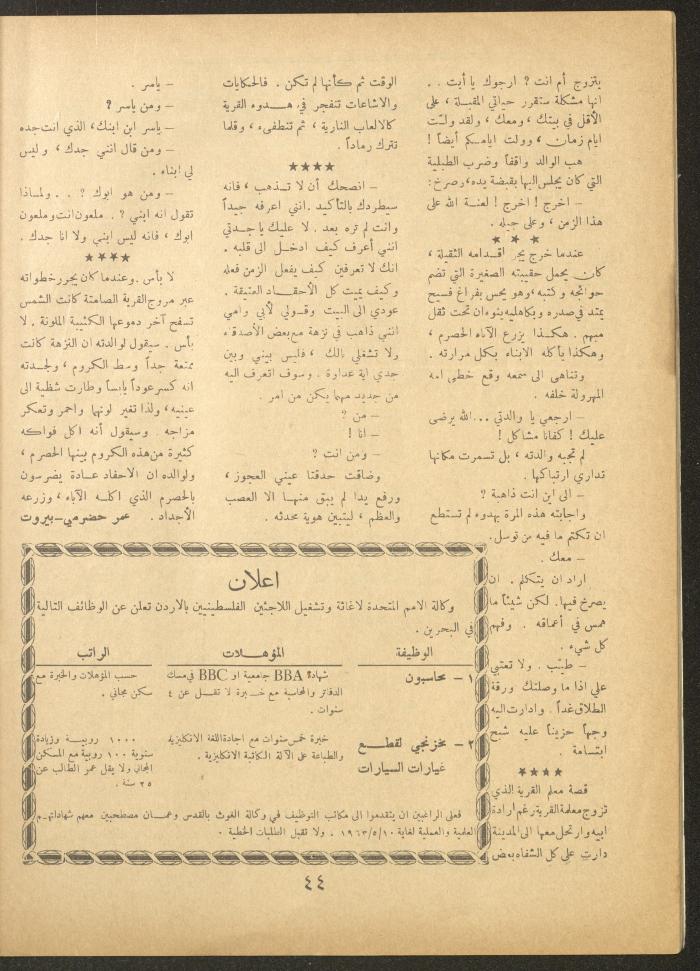 يتزوج أم انت ? ارجوك يا أبت . .
انها مشكلة ستقرر حياتي المقبلة ، على
الأقل في بيتك ، ومعك ، ولقد ولّت
ايام زمان ، وولت ايامكم أيضاً !
هب الوالد واقفاً وضرب الطبلية
التي كان يجلس اليها بقبضة يده، وصرخ:
– اخرج ! اخرج ! لعنـة الله على
هذا الزمن ، وعلى جيله .
★ ★ ★
عندما خرج يجر اقـدامه الثقيلة ،
كان يحمل حقيبته الصغيرة التي تضم
حوائجه وكتبه ،وهو يحس بفراغ فسيح
يمتد في صدره وبكاهليه ينوءان تحت ثقل
مبهم . هكـذا يزرع الآباء الحصرم ،
وهكذا يأكله الابناء بكل مرارته .
وتناهى الى سمعه وقع خطى امه
المهرولة خلفه .
– ارجعي يا والدتي ... الله يرضى
عليك ! كفانا مشاكل !
لم تجبه والدته ، بل تسمرت مكانها
تداري ارتباكها .
– الى اين انت ذاهبة ?
واجابته هذه المرة بهدوء لم تستطع
ان تكتم ما فيه من توسل.
– معك .
اراد ان يتكلم . ان
يصرخ فيها. لكن شيئاً ما
همس في أعماقه . وفهم
كل شيء .
– طيّب . ولا تعتبي
علي اذا ما وصلتك ورقة
الطلاق غداً . وادارت اليه
وجهاً حزيناً عليه شبح
ابتسامة .
★★★★
قصة معلم القرية الذي
تزوج معلمة القرية رغم ارادة
ابيه وارتحل معها الى المدينة
دارت على كل الشفاه بعض
الوقت ثم كأنها لم تكن . فالحكايات
والاشاعات تنفجر في هـدوء القرية
كالالعاب النارية ، ثم تنطفىء ، وقلما
تترك رماداً .
★★★★
– انصحك أن لا تـذهب ، فانه
سيطردك بالتأكيد . انني اعرفه جيداً
وانت لم تره بعد . لا عليك يا جـدتي
انني أعرف كيف ادخـل الى قلبه .
انك لا تعرفين كيف يفعل الزمن فعله
وكيف يميت كل الأحقـاد العتيقة .
عودي الى البيت وقـولي لأبي وامي
انني ذاهب في نزهة مع بعض الأصدقاء
ولا تشغلي بالك ، فليس بيني وبين
جدي اية عداوة . وسوف اتعرف اليه
من جديد مهما يكن من امر .
– من ?
– انا !
– ومن انت ?
وضاقت حدقتا عيني العجوز ،
ورفع يدا لم يبق منهـا الا العصب
والعظم ، ليتبين هوية محدثه .
– ياسر .
– ومن ياسر ?
– ياسر ابن ابنك، الذي انت جده
– ومن قال انني جدك ، وليس
لي ابناء .
– ومن هو ابوك ? . . ولماذا
تقول انه ابني ? . ملعون انت وملعون
ابوك ، فانه ليس ابني ولا انا جدك .
★★★★
لا بأس . وعندما كان يجرر خطواته
عبر مروج القرية الصامتة كانت الشمس
تسفح آخر دموعها الكثيبة الملونة . لا
بأس . سيقول لوالدته ان النزهة كانت
ممتعة جداً وسط الكروم ، ولجـدته
انه كسر عوداً يابساً وطارت شظية الى
عينيه ، ولذا تغير لونها واحمر وتعكر
مزاجه . وسيقول أنه اكل فواكه
كثيرة من هذه الكروم بينها الحصرم ،
ولوالده ان الاحفاد عـادة يضرسون
بالحصرم الذي اكلـه الآباء ، وزرعه
الأجداد . عمر حضرمي–بيروت
اعلان
وكالة الامم المتحدة لاغاثة وتشغيل اللاجئين الفلسطينيين بالاردن تعلن عن الوظائف التالية
في البحرين .
الوظيفة المؤهـلات الراتب
١ – محاسبون شهادة BBA جامعية او BBC في مسك حسب المؤهلات والخبرة مع
الدفاتر والمحاسبة مع خـبرة لا تقـل عن ٤ سكن مجاني .
سنوات .
٢ – مخزنجي لقطـع خبرة خمس سنوات مع اجادة اللغة الانكليزية ١٠٠٠ روبيـة وزيادة
غيارات السيارات والطباعة على الآلة الكاتبة الانكليزية . سنوية ١٠٠ روبية مع المسكن
المجاني ولا يقل عمر الطالب عن
٢٥ سنة .
فعلى الراغبين ان يتقدموا الى مكاتب التوظيف في وكالة الغوث بالقدس وعمـان مصطحبين معهم شهاداتهـم
العلمية والعملية لغاية ١٩٦٣/٥/١٠ . ولا تقبل الطلبات الخطية .
٤٤